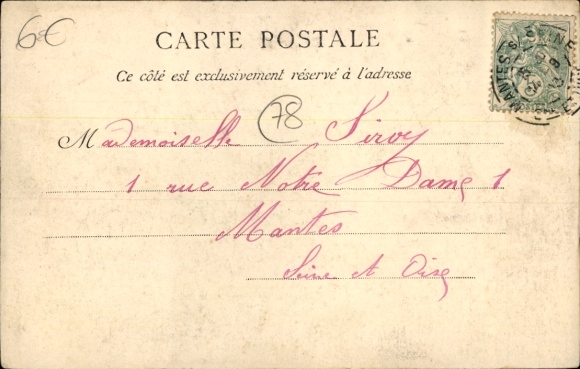 6€
CARTE POSTALE
Ce côté est exclusivement réservé à l'adresse
78
Mademoiselle Sirvy
1 rue Notre Dame 1
Mantes
Seine et Oise
MANTES S/ SEINE